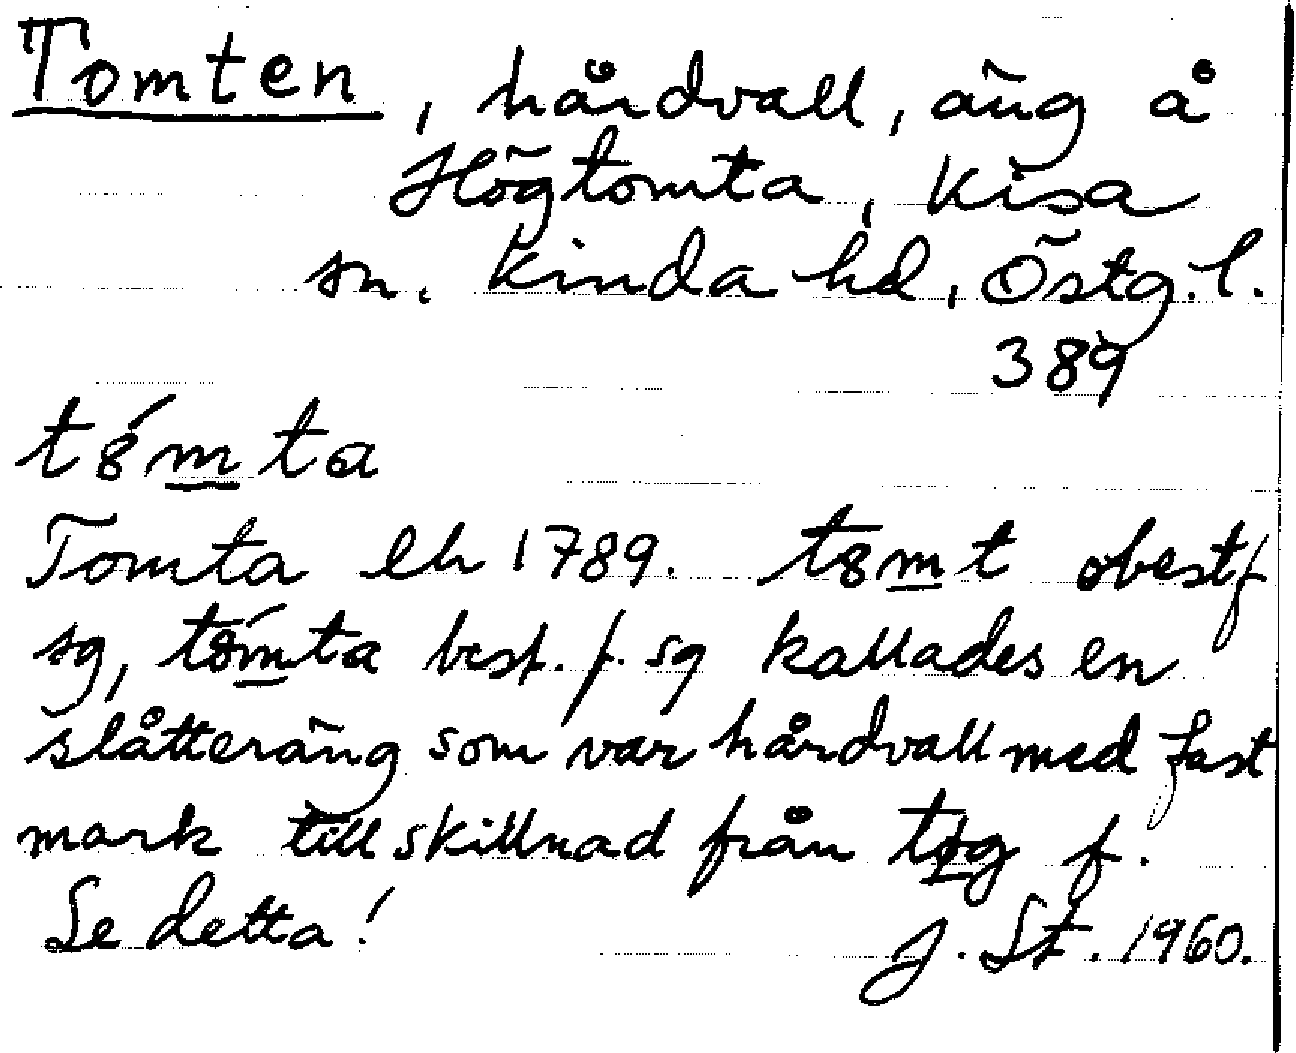 Tomten, hårdvall, äng å
Högtomta, Kisa
sn. Kinda hd, Östg. l.
389
tȣ́m̲ta
Tomta lh 1789. tȣm̲t obest f
sg, tȣ́m̲ta best. f. sg kallades en
slåtteräng som var hårdvall med fast
mark till skillnad från f.
Se detta!
J. St. 1960.